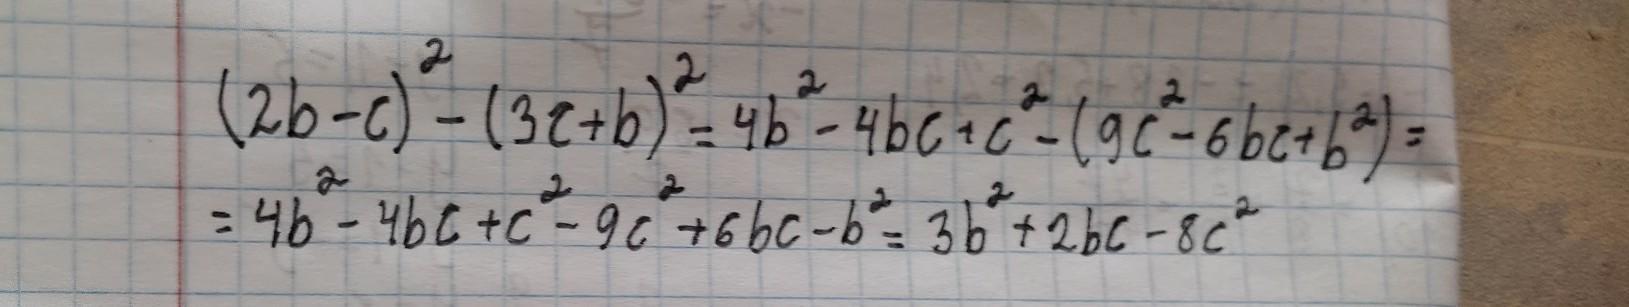 (2b-c)² - (3c+b)² = 4b² - 4bc + c² - (9c² - 6bc + b²) =
= 4b² - 4bc + c² - 9c² + 6bc - b² = 3b² + 2bc - 8c²